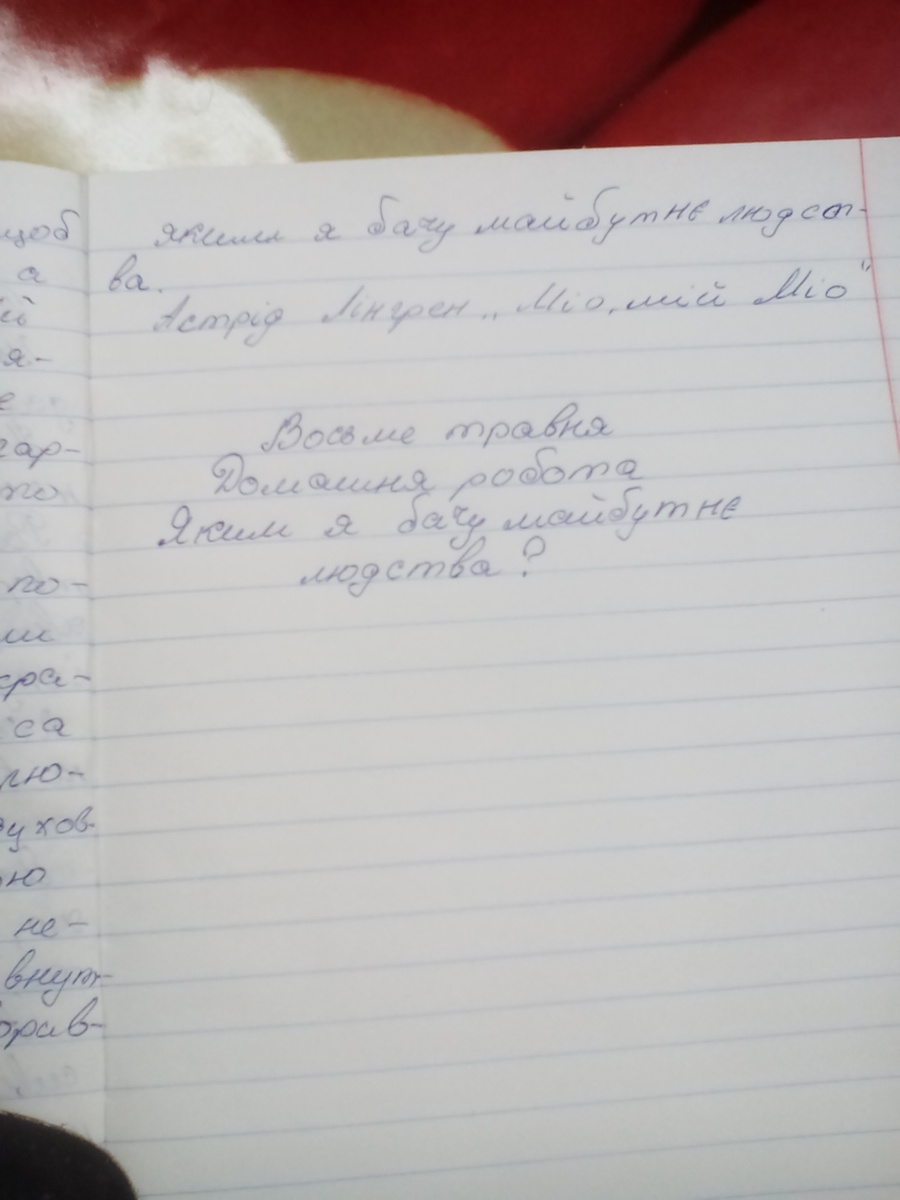 щоб
а
ій
я-
е
гар-
то
по-
ши
кра-
са
лю-
духов-
ою
не-
внут-
прав-
яким я бачу майбутнє людст-
ва.
Астрід Лінгрен „Міо, мій Міо"
Восьме травня
Домашня робота
Яким я бачу майбутнє
людства?